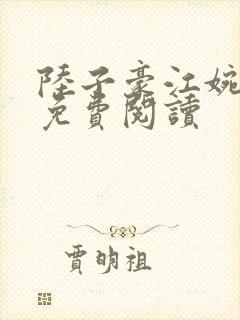 陸子豪江婉
免費閱讀
賈明祖